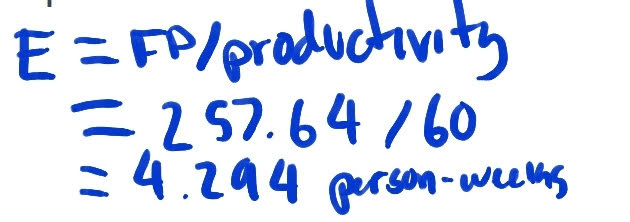 E = FP/productivity
= 257.64 / 60
= 4.294 person-weeks